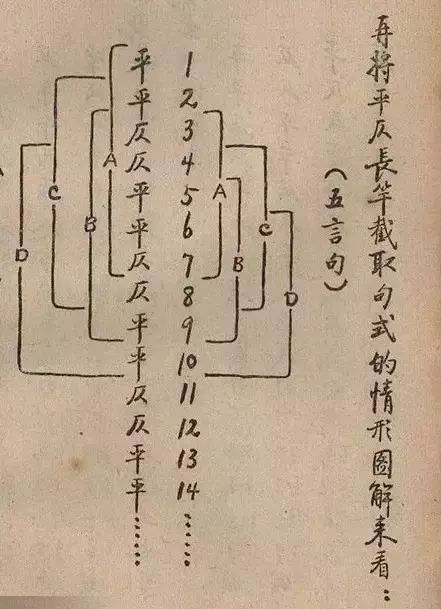 再將平仄長竿截取句式的情形圖解來看：
（五言句）
平 1
平 2
仄 3
仄 4
平 5
平 6
仄 7
仄 8
平 9
平 10
仄 11
仄 12
平 13
平 14
…… ……
A
B
C
D
A
B
C
D